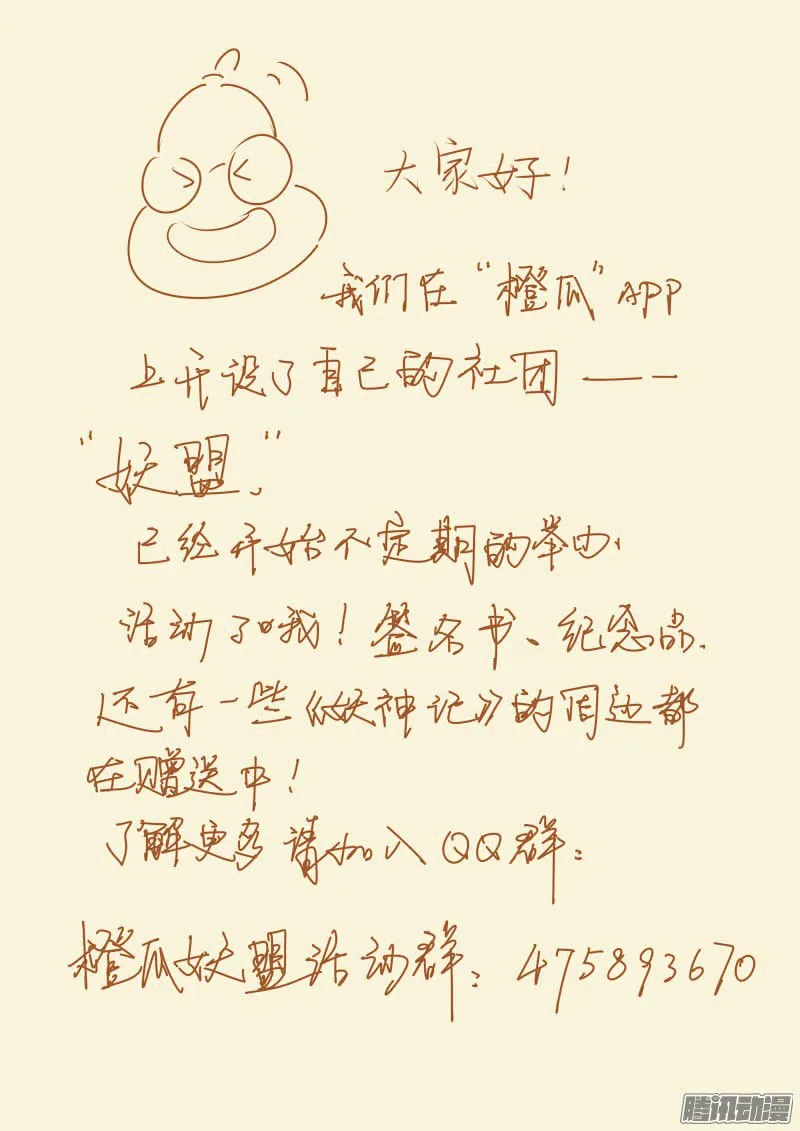 大家好！
我们在“橙瓜”APP
上开设了自己的社团——
“妖盟”
已经开始不定期的举办
活动了哦！签名书、纪念品、
还有一些《妖神记》的周边都
在赠送中！
了解更多请加入QQ群：
橙瓜妖盟活动群：475893670
腾讯动漫